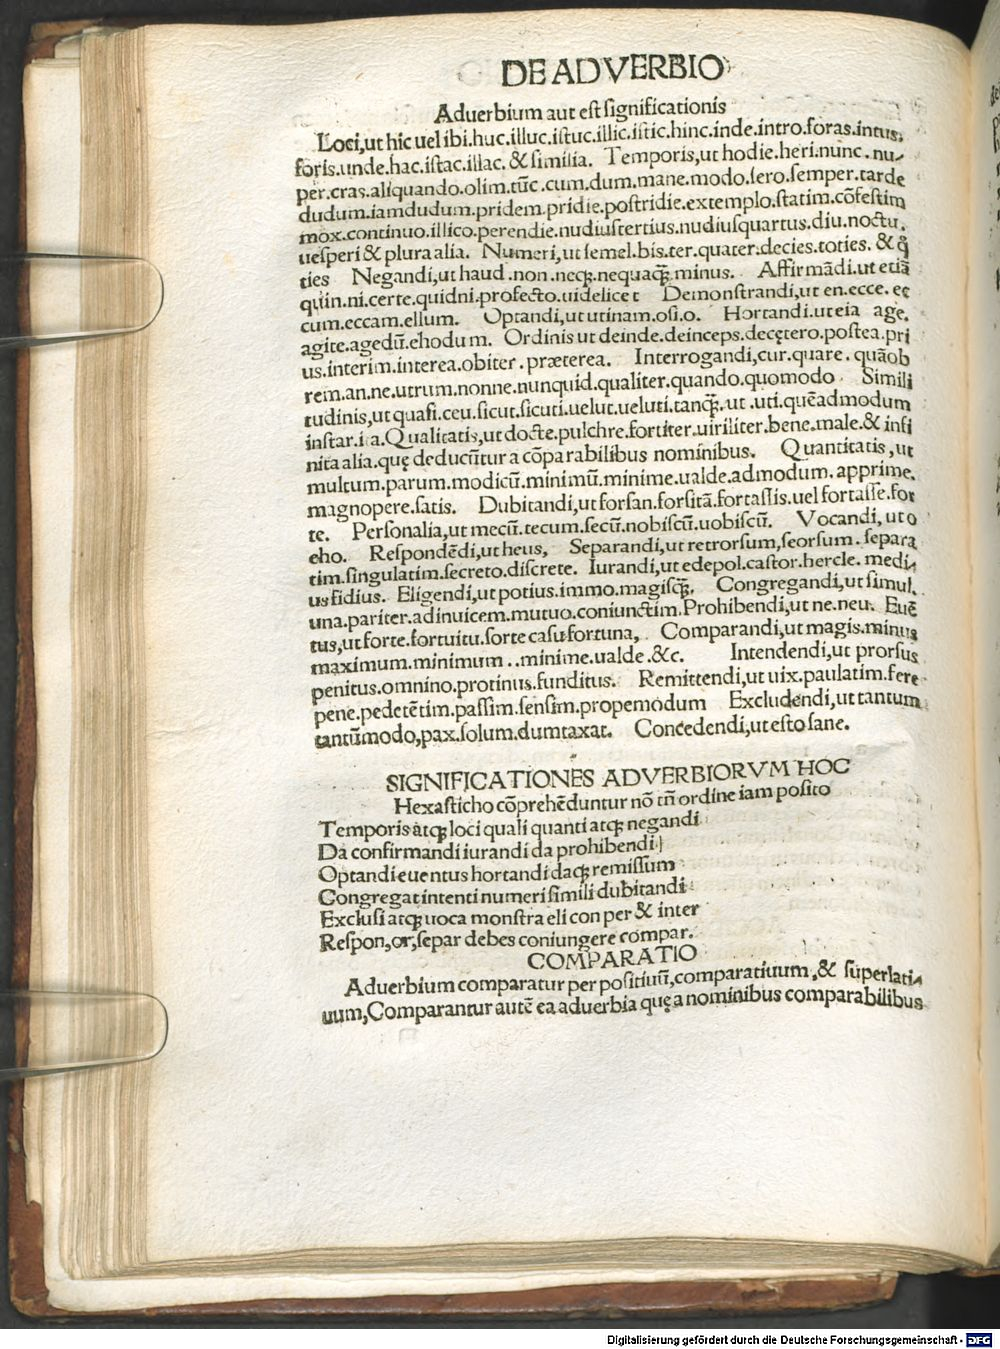 DE ADVERBIO
Aduerbium aut est significationis
Loci,ut hic uel ibi.huc.illuc.istuc.illic.istic.hinc.inde.intro.foras.intus.
foris.unde.hac.istac.illac. & similia. Temporis,ut hodie.heri.nunc.nu-
per.cras.aliquando.olim.tūc.cum.dum.mane.modo.sero.semper.tarde
dudum.iamdudum.pridem.pridie.postridie.extemplo.statim.cōfestim
mox.continuo.illico.perendie.nudiustertius.nudiusquartus.diu.noctu.
uesperi & plura alia. Numeri,ut semel.bis.ter.quater.decies.toties. & q̊
ties Negandi,ut haud.non.neqꝫ.nequaqꝫ̄.minus. Affirmādi.ut etiā
quin.ni.certe.quidni.profecto.uidelicet Demonstrandi,ut en.ecce.ec
cum.eccam.ellum. Optandi,ut utinam.osi.o. Hortandi.ut eia age.
agite.agedū.ehodum. Ordinis ut deinde.deinceps.decętero.postea.pri
us.interim.interea.obiter.præterea. Interrogandi,cur.quare.quāob
rem.an.ne.utrum.nonne.nunquid.qualiter.quando.quomodo. Simili
tudinis,ut quasi.ceu.sicut.sicuti.uelut.ueluti.tanqꝫ̄.ut.uti.quēadmodum
instar.ita.Qualitatis,ut docte.pulchre.fortiter.uiriliter.bene.male.& infi
nita alia.quę deducūtur a cōparabilibus nominibus. Quantitatis,ut
multum.parum.modicū.minimū.minime.ualde.admodum.apprime.
magnopere.satis. Dubitandi,ut forsan.forsitā.fortassis.uel fortasse.for
te. Personalia,ut mecū.tecum.secū.nobiscū.uobiscū. Vocandi,ut o
eho. Respondēdi,ut heus, Separandi,ut retrorsum,seorsum.separa
tim.singulatim.secreto.discrete. Iurandi,ut edepol.castor.hercle.medi-
us fidius. Eligendi,ut potius.immo.magisqꝫ̄. Congregandi,ut simul.
una.pariter.adinuicem.mutuo.coniunctim.Prohibendi,ut ne.neu. Euē
tus,ut forte.fortuitu.sorte casu fortuna, Comparandi,ut magis.minus
maximum.minimum..minime.ualde.&c. Intendendi,ut prorsus
penitus.omnino.protinus.funditus. Remittendi,ut uix.paulatim.fere
pene.pedetētim.passim.sensim.propemodum Excludendi,ut tantum
tantūmodo,pax.solum.dumtaxat. Concedendi,ut esto sane.
SIGNIFICATIONES ADVERBIORVM HOC
Hexasticho cōprehēduntur nō tn̄ ordine iam posito
Temporis atqꝫ loci quali quanti atqꝫ negandi
Da confirmandi iurandi da prohibendi
Optandi euentus hortandi daqꝫ remissum
Congregat intenti numeri simili dubitandi
Exclusi atqꝫ uoca monstra eli con per & inter
Respon,or,separ debes coniungere compar.
COMPARATIO
Aduerbium comparatur per positiuū,comparatiuum,& superlati-
uum,Comparantur autē ea aduerbia quę a nominibus comparabilibus
Digitalisierung gefördert durch die Deutsche Forschungsgemeinschaft - DFG